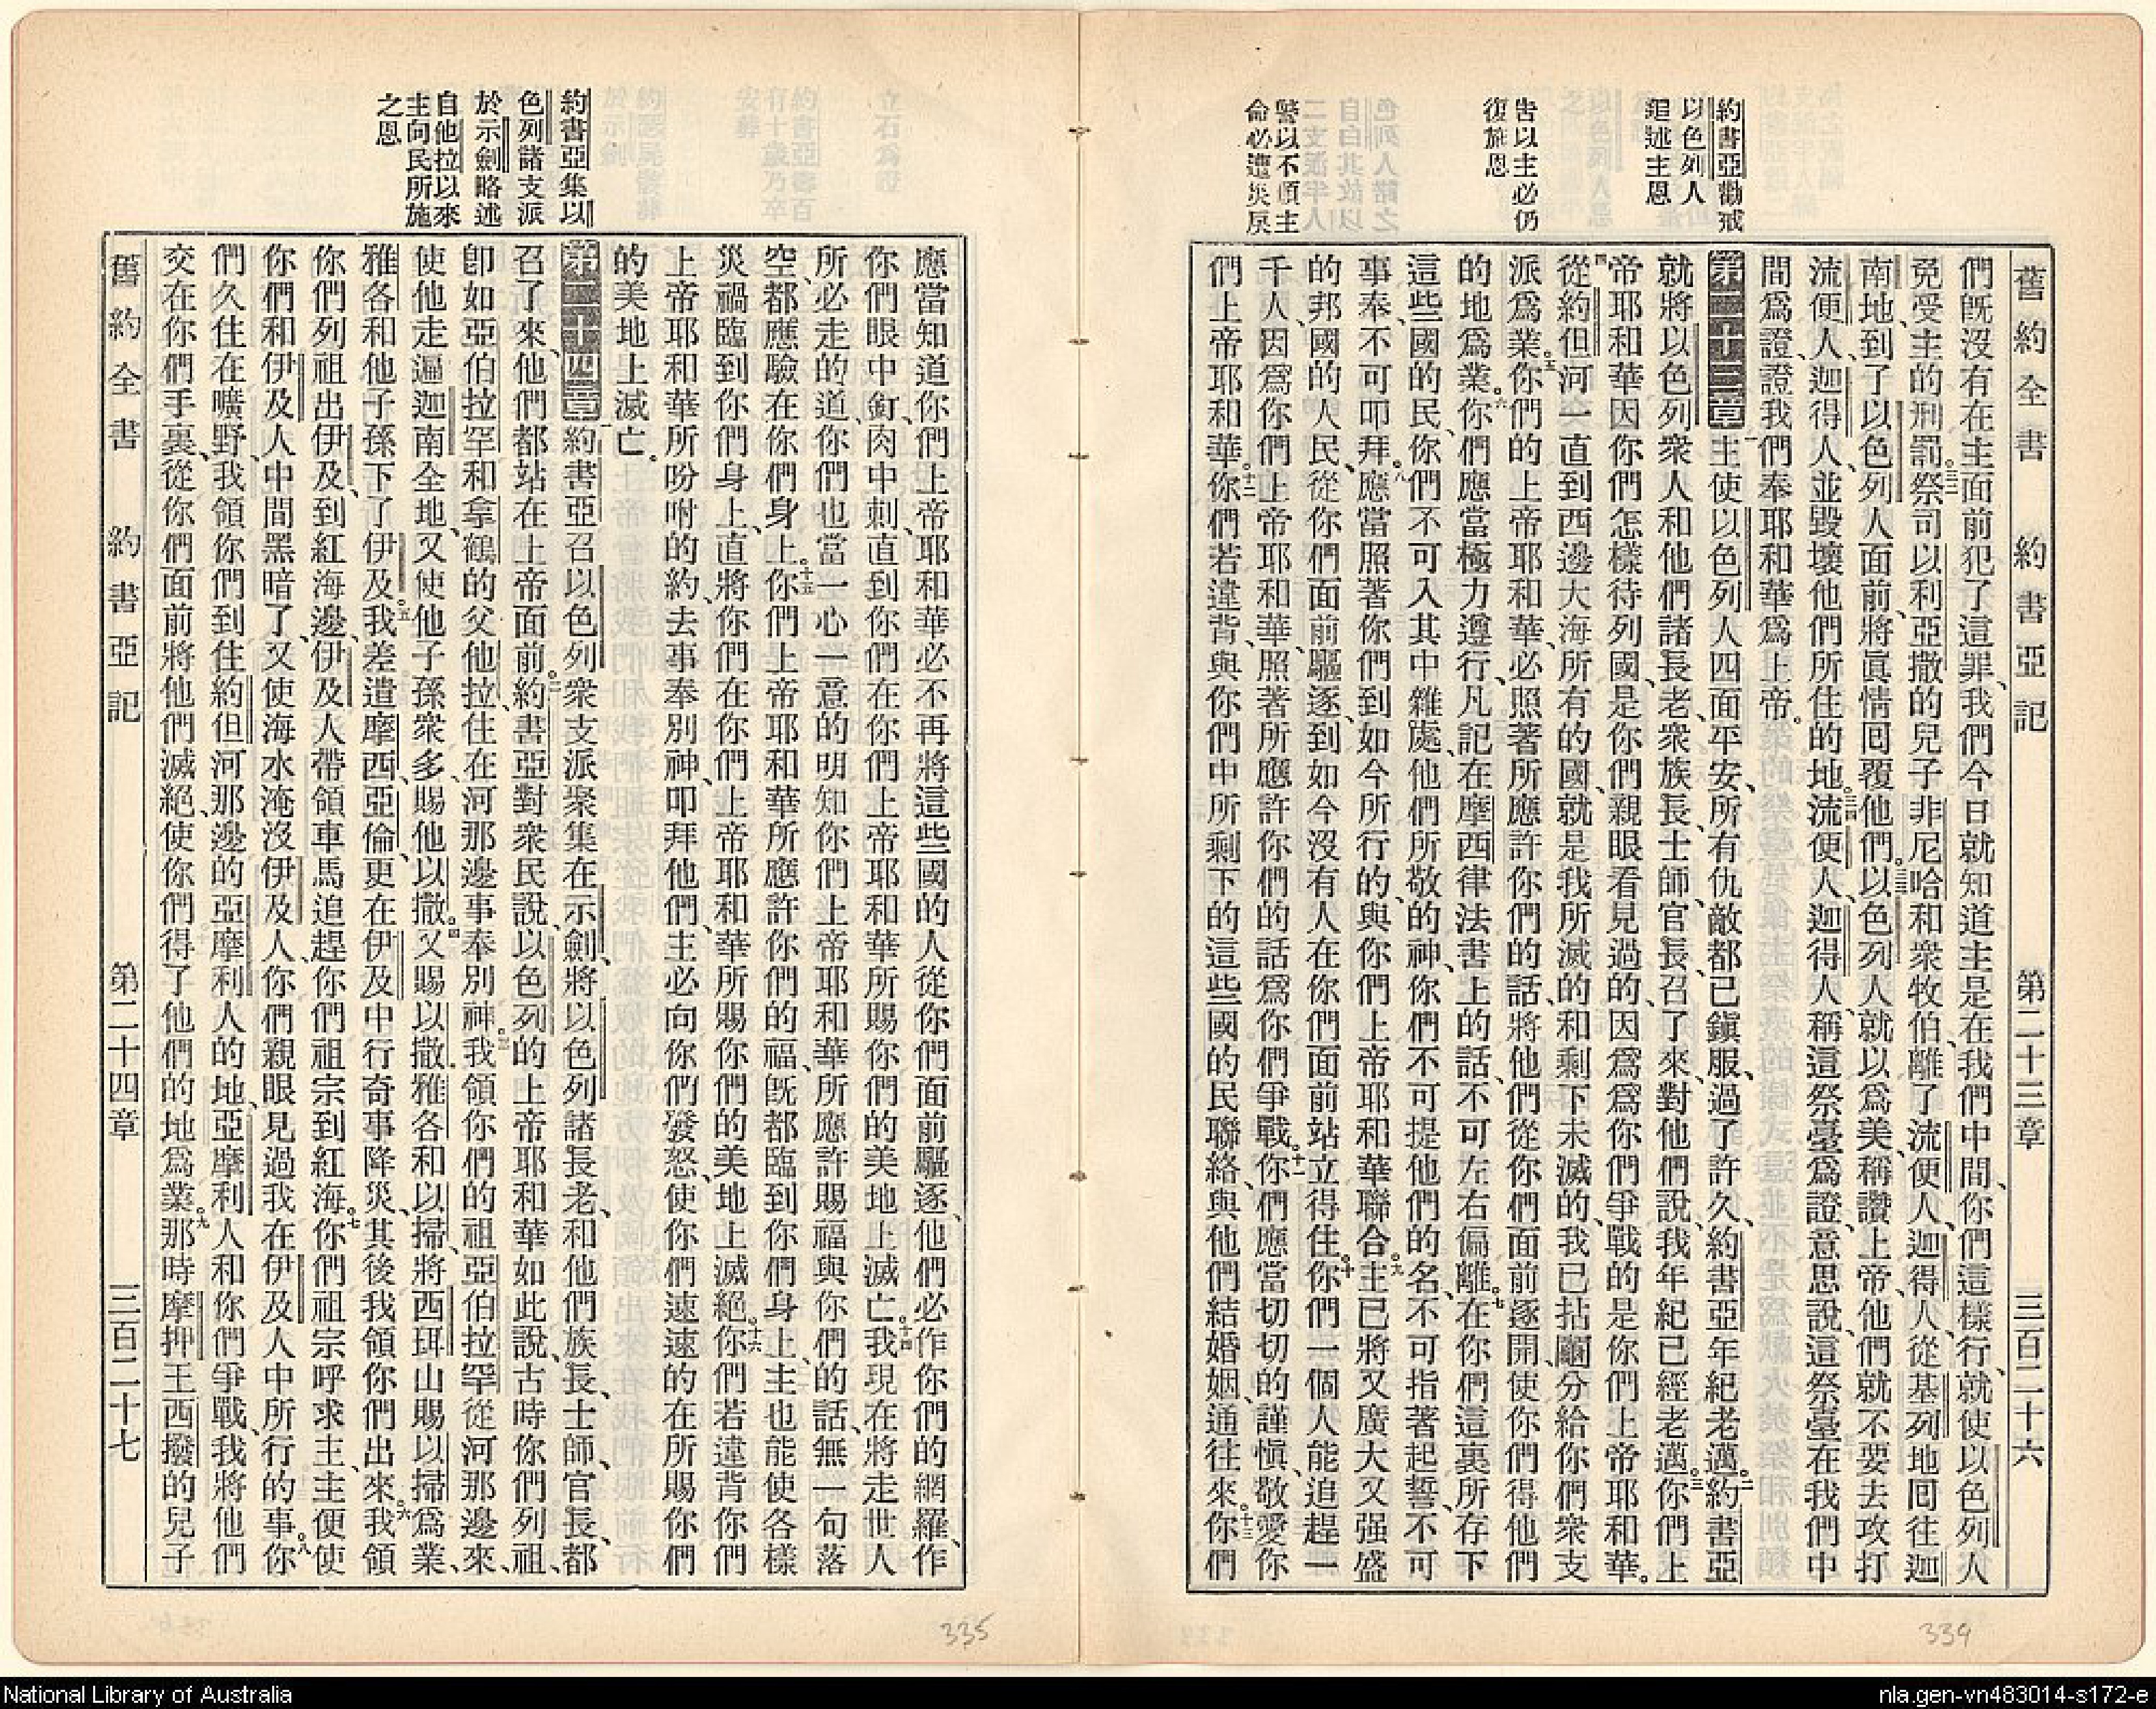 約書亞勸戒
以色列人
追述主恩
告以主必仍
復施恩
警以不順主
命必遭災戾
舊約全書 約書亞記 第二十三章 三百二十六
們既沒有在主面前犯了這罪、我們今日就知道主是在我們中間、你們這樣行、就使以色列人
免受主的刑罰。三二祭司以利亞撒的兒子非尼哈和衆牧伯、離了流便人、迦得人、從基列地囘往迦
南地、到了以色列人面前、將眞情囘覆他們。三三以色列人就以爲美、稱讚上帝、他們就不要去攻打
流便人、迦得人、並毀壞他們所住的地。三四流便人、迦得人、稱這祭臺爲證、意思說、這祭臺在我們中
間爲證、證我們奉耶和華爲上帝。
第二十三章 一主使以色列人四面平安、所有仇敵都已鎭服、過了許久、約書亞年紀老邁。二約書亞
就將以色列衆人和他們諸長老、衆族長、士師、官長、召了來、對他們說、我年紀已經老邁。三你們上
帝耶和華因你們怎樣待列國、是你們親眼看見過的、因爲爲你們爭戰的是你們上帝耶和華。
四從約但河一直到西邊大海、所有的國、就是我所滅的和剩下未滅的、我已拈鬮分給你們衆支
派爲業。五你們的上帝耶和華、必照著所應許你們的話、將他們從你們面前逐開、使你們得他們
的地爲業。六你們應當極力遵行、凡記在摩西律法書上的話、不可左右偏離。七在你們這裏所存下
這些國的民、你們不可入其中雜處、他們所敬的神、你們不可提他們的名、不可指著起誓、不可
事奉、不可叩拜。八應當照著你們到如今所行的、與你們上帝耶和華聯合。九主已將又廣大又强盛
的邦國的人民、從你們面前驅逐、到如今沒有人在你們面前站立得住。十你們一個人能追趕一
千人、因爲你們上帝耶和華、照著所應許你們的話、爲你們爭戰。十一你們應當切切的謹愼、敬愛你
們上帝耶和華。十二你們若違背、與你們中所剩下的這些國的民聯絡、與他們結婚姻、通往來。十三你們
約書亞集以
色列諸支派
於示劍略述
自他拉以來
主向民所施
之恩
應當知道你們上帝耶和華必不再將這些國的人從你們面前驅逐、他們必作你們的網羅、作
你們眼中釘、肉中刺、直到你們在你們上帝耶和華所賜你們的美地上滅亡。十四我現在將走世人
所必走的道、你們也當一心一意的明知你們上帝耶和華所應許賜福與你們的話、無一句落
空、都應驗在你們身上。十五你們上帝耶和華所應許你們的福、既都臨到你們身上、主也能使各樣
災禍臨到你們身上、直將你們在你們上帝耶和華所賜你們的美地上滅絕。十六你們若違背你們
上帝耶和華所吩咐的約、去事奉別神、叩拜他們、主必向你們發怒、使你們速速的在所賜你們
的美地上滅亡。
第二十四章 一約書亞召以色列衆支派聚集在示劍、將以色列諸長老、和他們族長、士師、官長、都
召了來、他們都站在上帝面前。二約書亞對衆民說、以色列的上帝耶和華如此說、古時你們列祖、
卽如亞伯拉罕和拿鶴的父他拉、住在河那邊事奉別神。三我領你們的祖亞伯拉罕從河那邊來、
使他走遍迦南全地、又使他子孫衆多、賜他以撒。四又賜以撒雅各和以掃、將西珥山賜以掃爲業、
雅各和他子孫下了伊及。五我差遣摩西、亞倫、更在伊及中行奇事降災、其後我領你們出來。六我領
你們列祖出伊及、到紅海邊、伊及人帶領車馬追趕你們祖宗到紅海。七你們祖宗呼求主、主便使
你們和伊及人中間黑暗了、又使海水淹沒伊及人、你們親眼見過我在伊及人中所行的事、你
們久住在曠野。八我領你們到住約但河那邊的亞摩利人的地、亞摩利人和你們爭戰、我將他們
交在你們手裏、從你們面前將他們滅絕、使你們得了他們的地爲業。九那時摩押王西撥的兒子
舊約全書 約書亞記 第二十四章 三百二十七
335
334
National Library of Australia
nla.gen-vn483014-s172-e